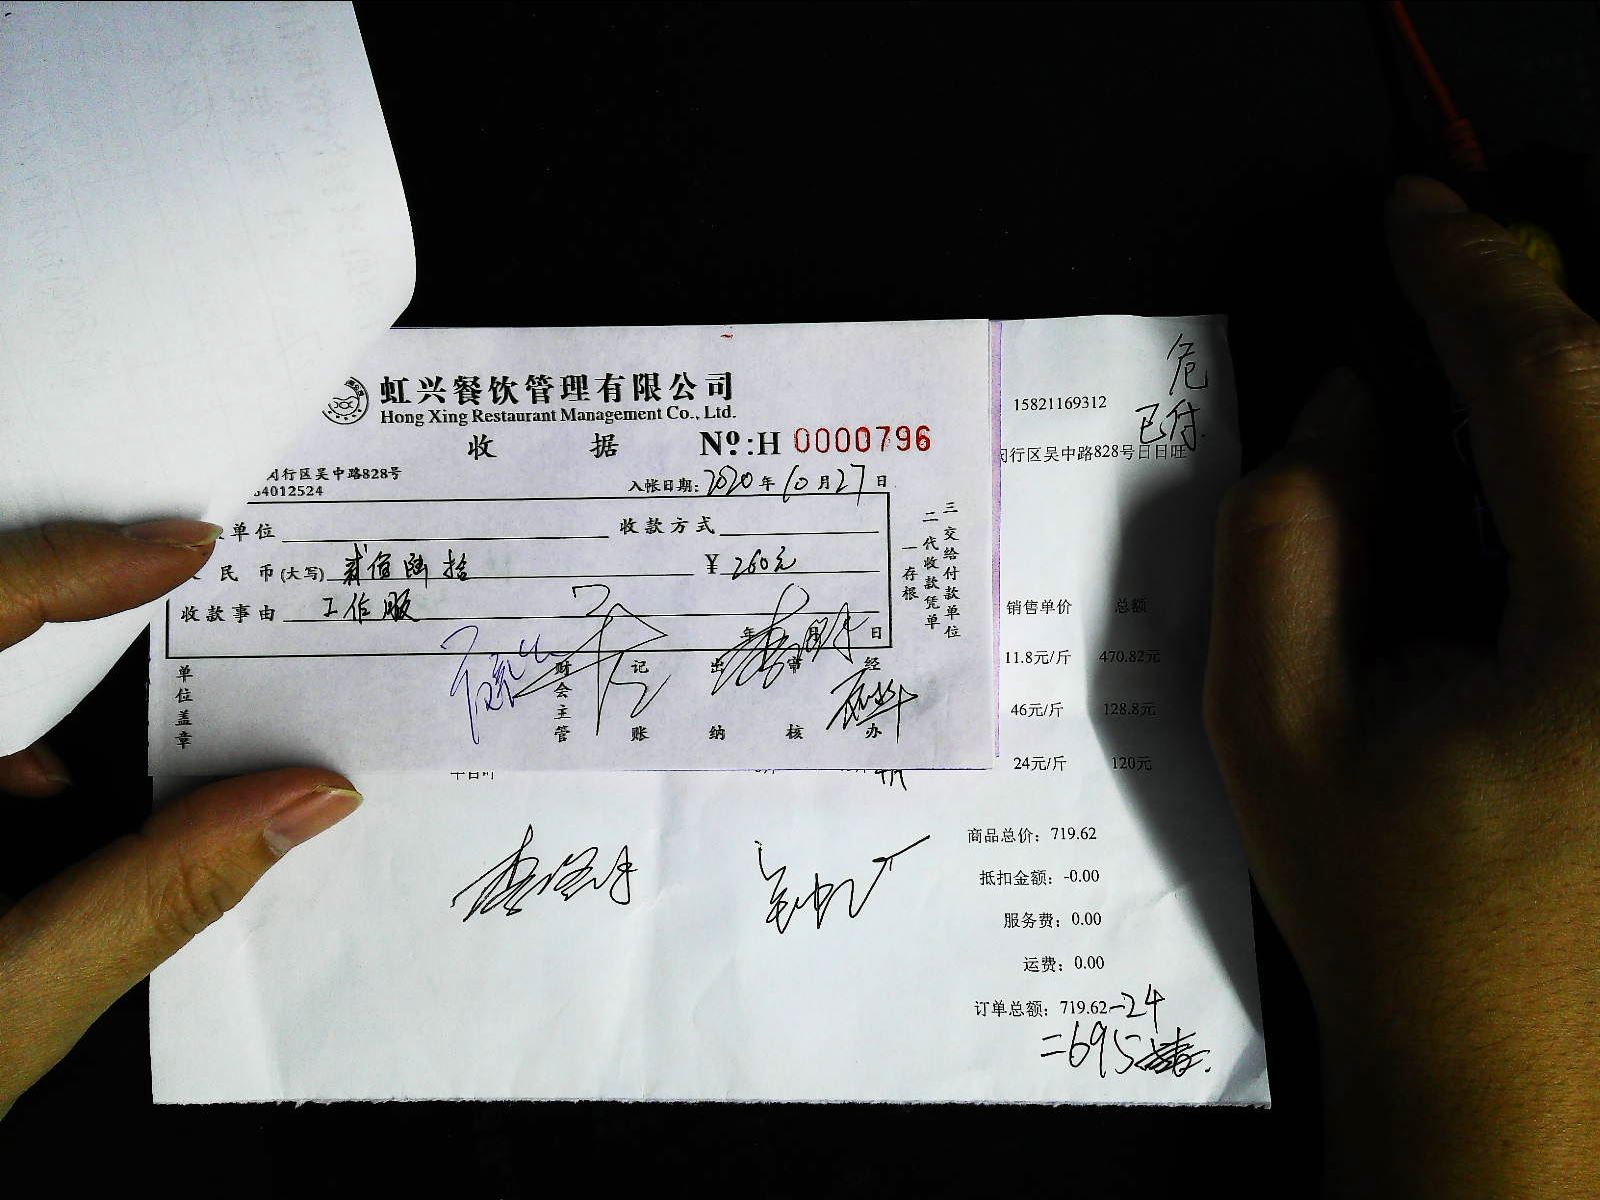 虹兴餐饮管理有限公司
Hong Xing Restaurant Management Co., Ltd.
收 据 Nº:H 0000796
闵行区吴中路828号
4012524
入帐日期: 2020 年 10 月 27 日
单位 收款方式
民 币 (大写) 贰佰陆拾 ¥ 260元
收款事由 工作服
年 月 日
一存根
二代收款凭单
三交给付款单位
单位盖章 财会主管 记账 出纳 审核 经办
危
15821169312
已付.
闵行区吴中路828号日日旺
销售单价 总额
11.8元/斤 470.82元
46元/斤 128.8元
24元/斤 120元
商品总价: 719.62
抵扣金额: -0.00
服务费: 0.00
运费: 0.00
订单总额: 719.62-24
=695